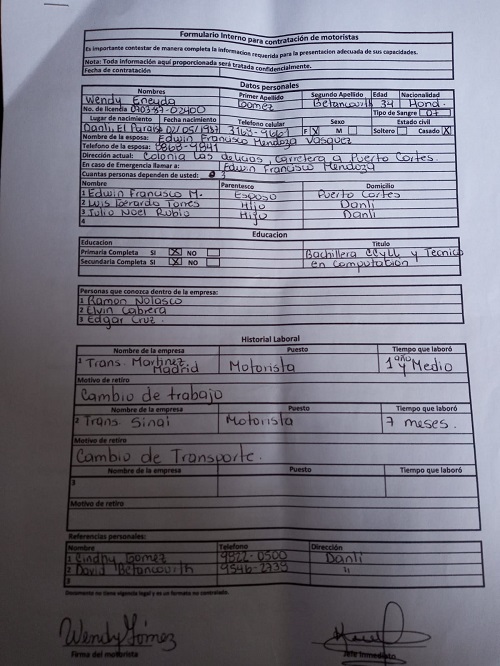 Formulario Interno para contratación de motoristas
Es importante contestar de manera completa la informacion requerida para la presentacion adecuada de sus capacidades.
Nota: Toda información aquí proporcionada será tratada confidencialmente.
Fecha de contratación
Datos personales
Nombres Primer Apellido Segundo Apellido Edad Nacionalidad
Wendy Eneyda Gomez Betancourth 34 Hond.
No. de licencia 0703-1987-02400 Tipo de Sangre O+
Lugar de nacimiento Fecha nacimiento Telefono celular Sexo Estado civil
Danli, El Paraiso 02/05/1987 3169-9661 F X M Soltero Casado X
Nombre de la esposa: Edwin Francisco Mendoza Vasquez
Telefono de la esposa: 8868-9841
Dirección actual: Colonia Las delicias, Carretera a Puerto Cortes.
En caso de Emergencia llamar a: Edwin Francisco Mendoza
Cuantas personas dependen de usted: 3
Nombre Parentesco Domicilio
1 Edwin Francisco M. Esposo Puerto Cortes
2 Luis Gerardo Torres Hijo Danli
3 Julio Noel Rubio Hijo Danli
4
Educacion
Educacion Titulo
Primaria Completa SI X NO Bachillera CCyLL y Tecnico
Secundaria Completa SI X NO en Computación
Personas que conozca dentro de la empresa:
1 Ramon Nolasco
2 Elvin Cabrera
3 Edgar Cruz.
Historial Laboral
Nombre de la empresa Puesto Tiempo que laboró
1 Trans. Martinez Madrid Motorista 1 año y Medio
Motivo de retiro
Cambio de trabajo
Nombre de la empresa Puesto Tiempo que laboró
2 Trans. Sinai Motorista 7 meses.
Motivo de retiro
Cambio de Transporte.
Nombre de la empresa Puesto Tiempo que laboró
3
Motivo de retiro
Referencias personales:
Nombre Telefono Dirección
1 Cindhy Gomez 9822-0500 Danli
2 David Betancourth 9546-2739 "
3
Documento no tiene vigencia legal y es un formato no controlado.
Wendy Gómez
Firma del motorista Jefe inmediato